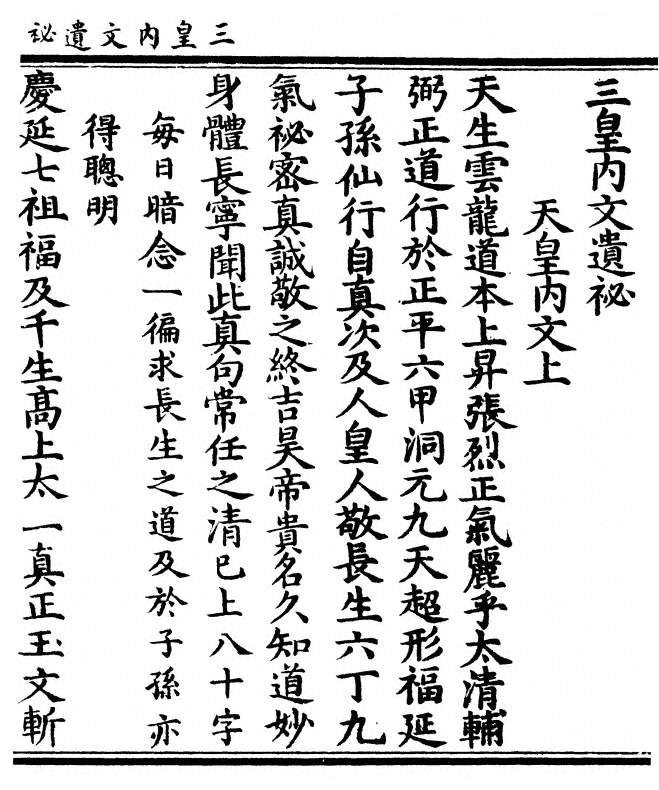 三皇內文遺祕
三皇內文遺祕
天皇內文上
天生雲龍道本上昇張烈正氣麗乎太清輔
弼正道行於正平六甲洞元九天超形福延
子孫仙行自真次及人皇人敬長生六丁九
氣祕密真誠敬之終吉昊帝貴名久知道妙
身體長寧聞此真句常任之清已上八十字
每日暗念一徧求長生之道及於子孫亦
得聰明
慶延七祖福及千生高上太一真正玉文斬